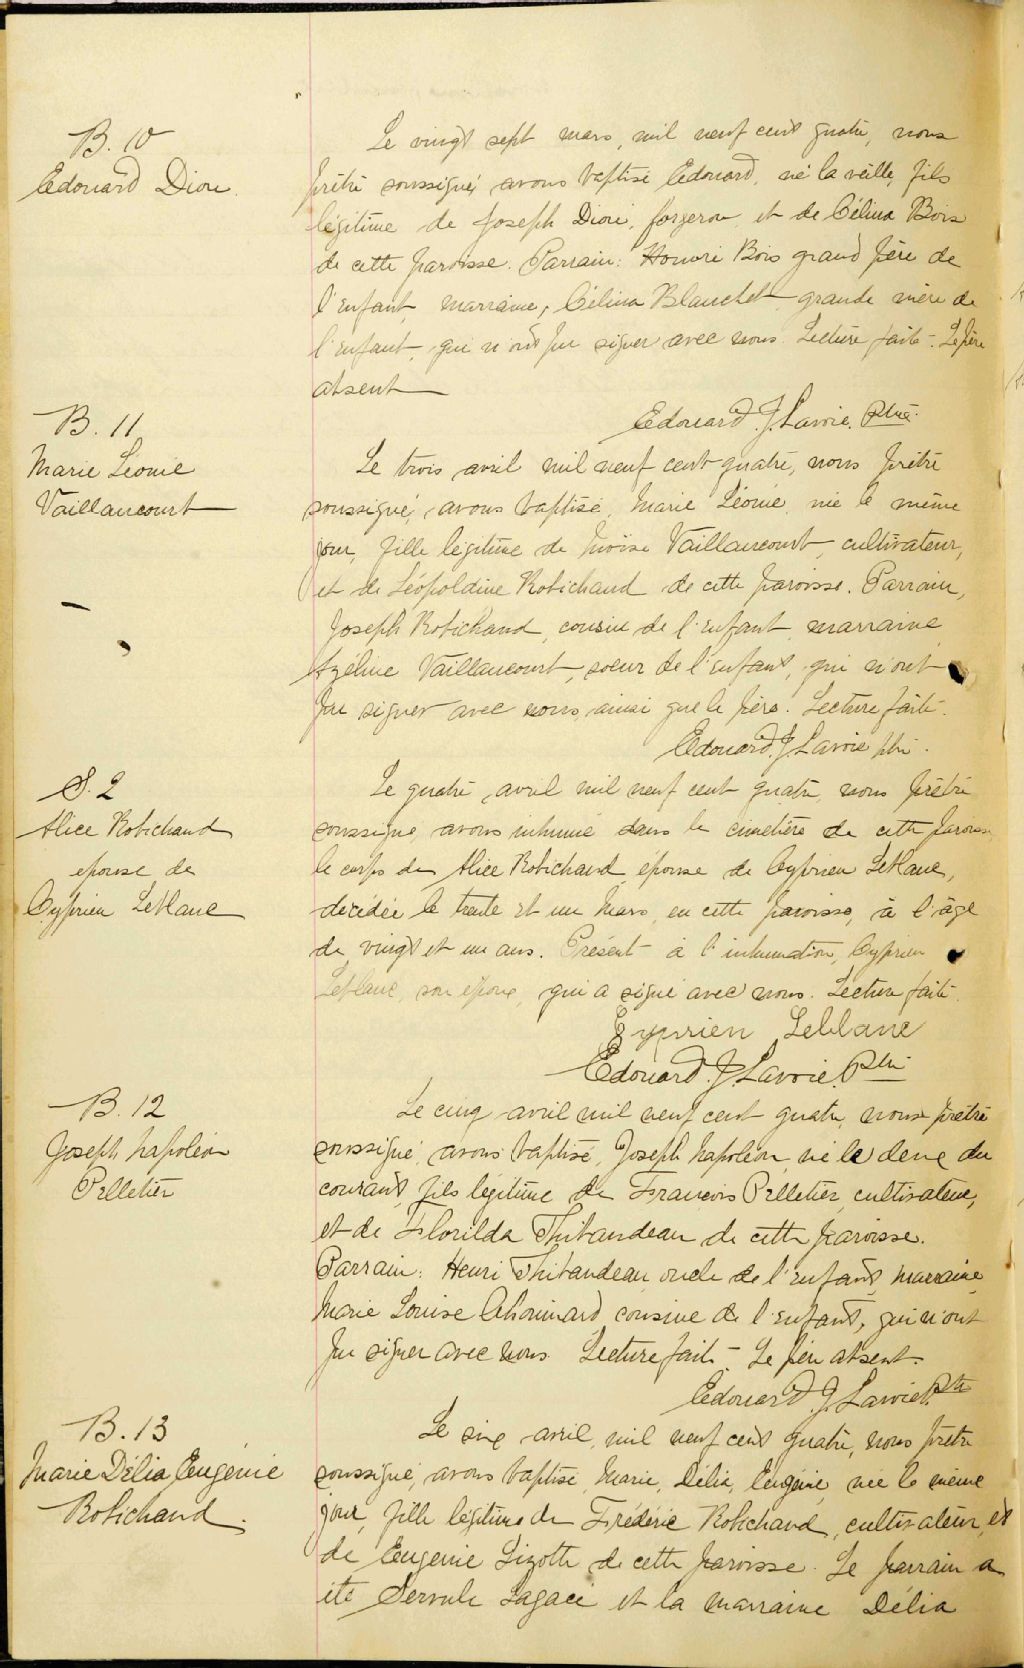 B. 10
Edouard Dion.
Le vingt sept mars, mil neuf cent quatre, nous
prêtre soussigné, avons baptisé Edouard, né la veille, fils
légitime de Joseph Dion, forgeron et de Célina Bois
de cette paroisse. Parrain: Honoré Bois grand père de
l'enfant, marraine, Célina Blanchet grande mère de
l'enfant, qui n'ont pu signer avec nous. Lecture faite. Le père
absent
Edouard. J. Lavoie. Ptre.
B. 11
Marie Léonie
Vaillancourt
Le trois avril mil neuf cent quatre, nous prêtre
soussigné, avons baptisé, Marie Léonie, née le même
jour, fille légitime de Moïse Vaillancourt, cultivateur,
et de Léopoldine Robichaud de cette paroisse. Parrain,
Joseph Robichaud, cousin de l'enfant, marraine
Azéline Vaillancourt, soeur de l'enfant, qui n'ont
pu signer avec nous, ainsi que le père. Lecture faite.
Edouard. J. Lavoie ptre.
S. 2
Alice Robichaud
epouse de
Cyprien Leblanc
Le quatre, avril mil neuf cent quatre, nous prêtre
soussigné, avons inhumé dans le cimetière de cette paroisse
le corps de Alice Robichaud, épouse de Cyprien Leblanc,
décédée le trente et un Mars, en cette paroisse, à l'âge
de vingt et un ans. Présent à l'inhumation, Cyprien
Leblanc, son époux, qui a signé avec nous. Lecture faite.
Cyprien Leblanc
Edouard. J. Lavoie. Ptre
B. 12
Joseph Napoléon
Pelletier
Le cinq avril mil neuf cent quatre, nous prêtre
soussigné, avons baptisé, Joseph Napoléon, né le deux du
courant, fils légitime de François Pelletier, cultivateur,
et de Florilda Thibaudeau de cette paroisse.
Parrain: Henri Thibaudeau, oncle de l'enfant, marraine,
Marie Louise Chouinard cousine de l'enfant, qui n'ont
pu signer avec nous. Lecture faite. Le père absent.
Edouard. J. Lavoie. Ptre
B. 13
Marie Délia Eugénie
Robichaud.
Le six avril, mil neuf cent quatre, nous prêtre
soussigné, avons baptisé, Marie, Délia, Eugénie, née le même
jour, fille légitime de Frédéric Robichaud, cultivateur, et
de Eugenie Lizotte de cette paroisse. Le parrain a
été Servule Lagacé et la marraine Délia